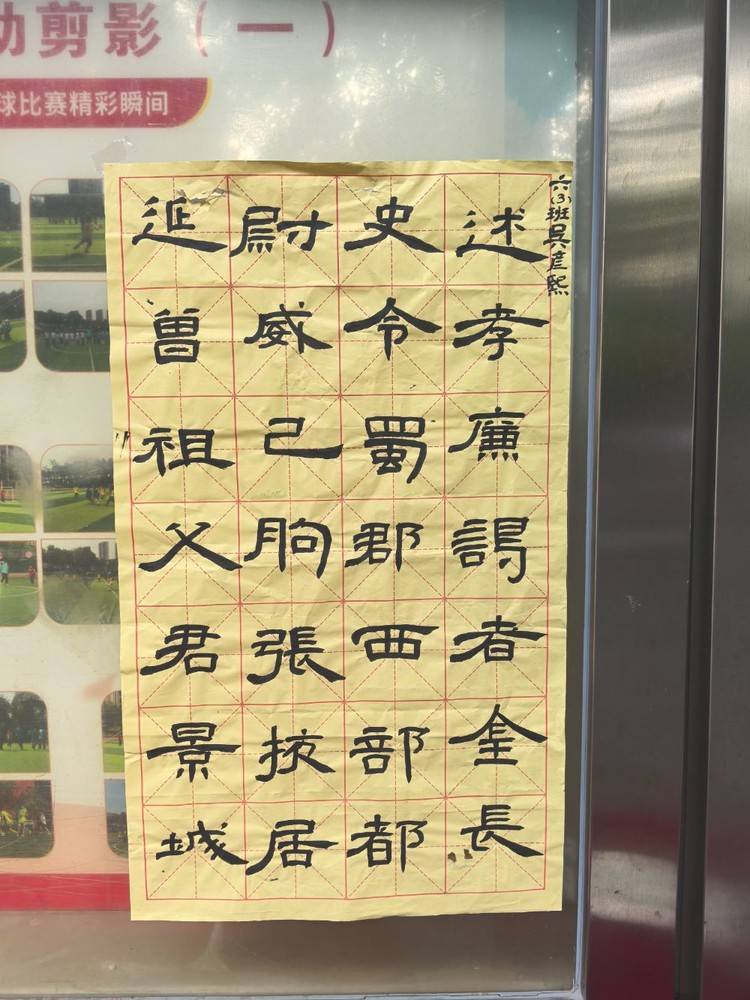 动剪影（一）
球比赛精彩瞬间
六(3)班吴彦熙
述孝廉謁者金長
史令蜀郡西部都
尉威己朐張掖居
延曾祖父君景城